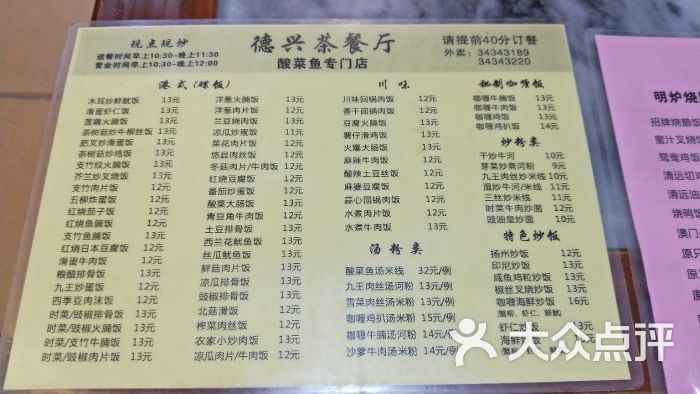 现点现炒
送餐时间早上10:30-晚上11:30
营业时间早上10:30-晚上12:00
德兴茶餐厅
酸菜鱼专门店
请提前40分订餐
外卖：34343189
34343220
港式(碟饭)
木耳炒鲜鱿饭 13元
滑蛋虾仁饭 13元
莲藕火腩饭 13元
茶树菇炒牛柳丝饭 13元
肥叉炒滑蛋饭 13元
茶树菇炒鸡饭 13元
支竹炆火腩饭 13元
芥兰炒叉烧饭 13元
支竹肉片饭 12元
五柳炸蛋饭 12元
红烧茄子饭 12元
红烧鱼腩饭 12元
支竹鱼腩饭 12元
红烧日本豆腐饭 12元
滑蛋牛肉饭 12元
粮醋排骨饭 13元
九王炒蛋饭 12元
四季豆肉沫饭 12元
时菜/豉椒排骨饭 13元
时菜/豉椒火腩饭 13元
时菜/支竹牛腩饭 13元
时菜/豉椒肉片饭 12元
洋葱火腩饭 13元
洋葱牛肉饭 13元
兰豆烧肉饭 13元
凉瓜炒蛋饭 11元
菜花肉片饭 12元
悠县肉丝饭 12元
冬菇肉片/牛肉饭 12元
红烧豆腐饭 12元
番茄炒蛋饭 12元
酸菜大肠饭 13元
青豆角牛肉饭 12元
土豆排骨饭 13元
西兰花鱿鱼饭 13元
丝瓜鱿鱼饭 13元
鲜菇肉片饭 12元
凉瓜排骨饭 13元
豉椒排骨饭 13元
北菇滑饭 12元
榨菜肉丝饭 12元
农家小炒肉饭 13元
凉瓜肉片/牛肉饭 12元
川味
川味回锅肉饭 12元
香干回锅肉饭 12元
豆腐火腩饭 13元
薯仔滑鸡饭 13元
火爆大肠饭 13元
麻辣牛肉饭 12元
酸辣土豆丝饭 12元
麻婆豆腐饭 12元
蒜心回锅肉饭 12元
水煮肉片饭 12元
水煮牛肉饭 12元
汤粉类
酸菜鱼汤米线 32元/例
九王肉丝汤河粉 13元/例
雪菜肉丝汤河粉 13元/例
咖喱鸡扒汤米粉 15元/例
咖喱牛腩汤河粉 14元/例
沙爹牛肉汤米粉 14元/例
秘制咖喱饭
咖喱牛腩饭 13元
咖喱牛肉饭 13元
咖喱鸡扒饭 14元
炒粉类
干炒牛河 10元
芽菜炒斋河粉 9元
九王肉丝炒米线 10元
湿炒牛河/米线 11元
三丝炒米线 11元
时菜牛肉炒面 12元
豉油皇炒面 10元
特色炒饭
扬州炒饭 12元
印尼炒饭 13元
咸鱼鸡粒炒饭 13元
椒丝叉烧炒饭 13元
咖喱海鲜炒饭 16元
(蟹柳、虾仁、鲜鱿)
虾仁炒饭
海鲜炒饭
明炉烧
招牌烧鹅饭
蜜汁叉烧饭
鸳鸯鸡饭
清远切鸡
清远烧
烧鸭饭
澳门
原只
原
大众点评